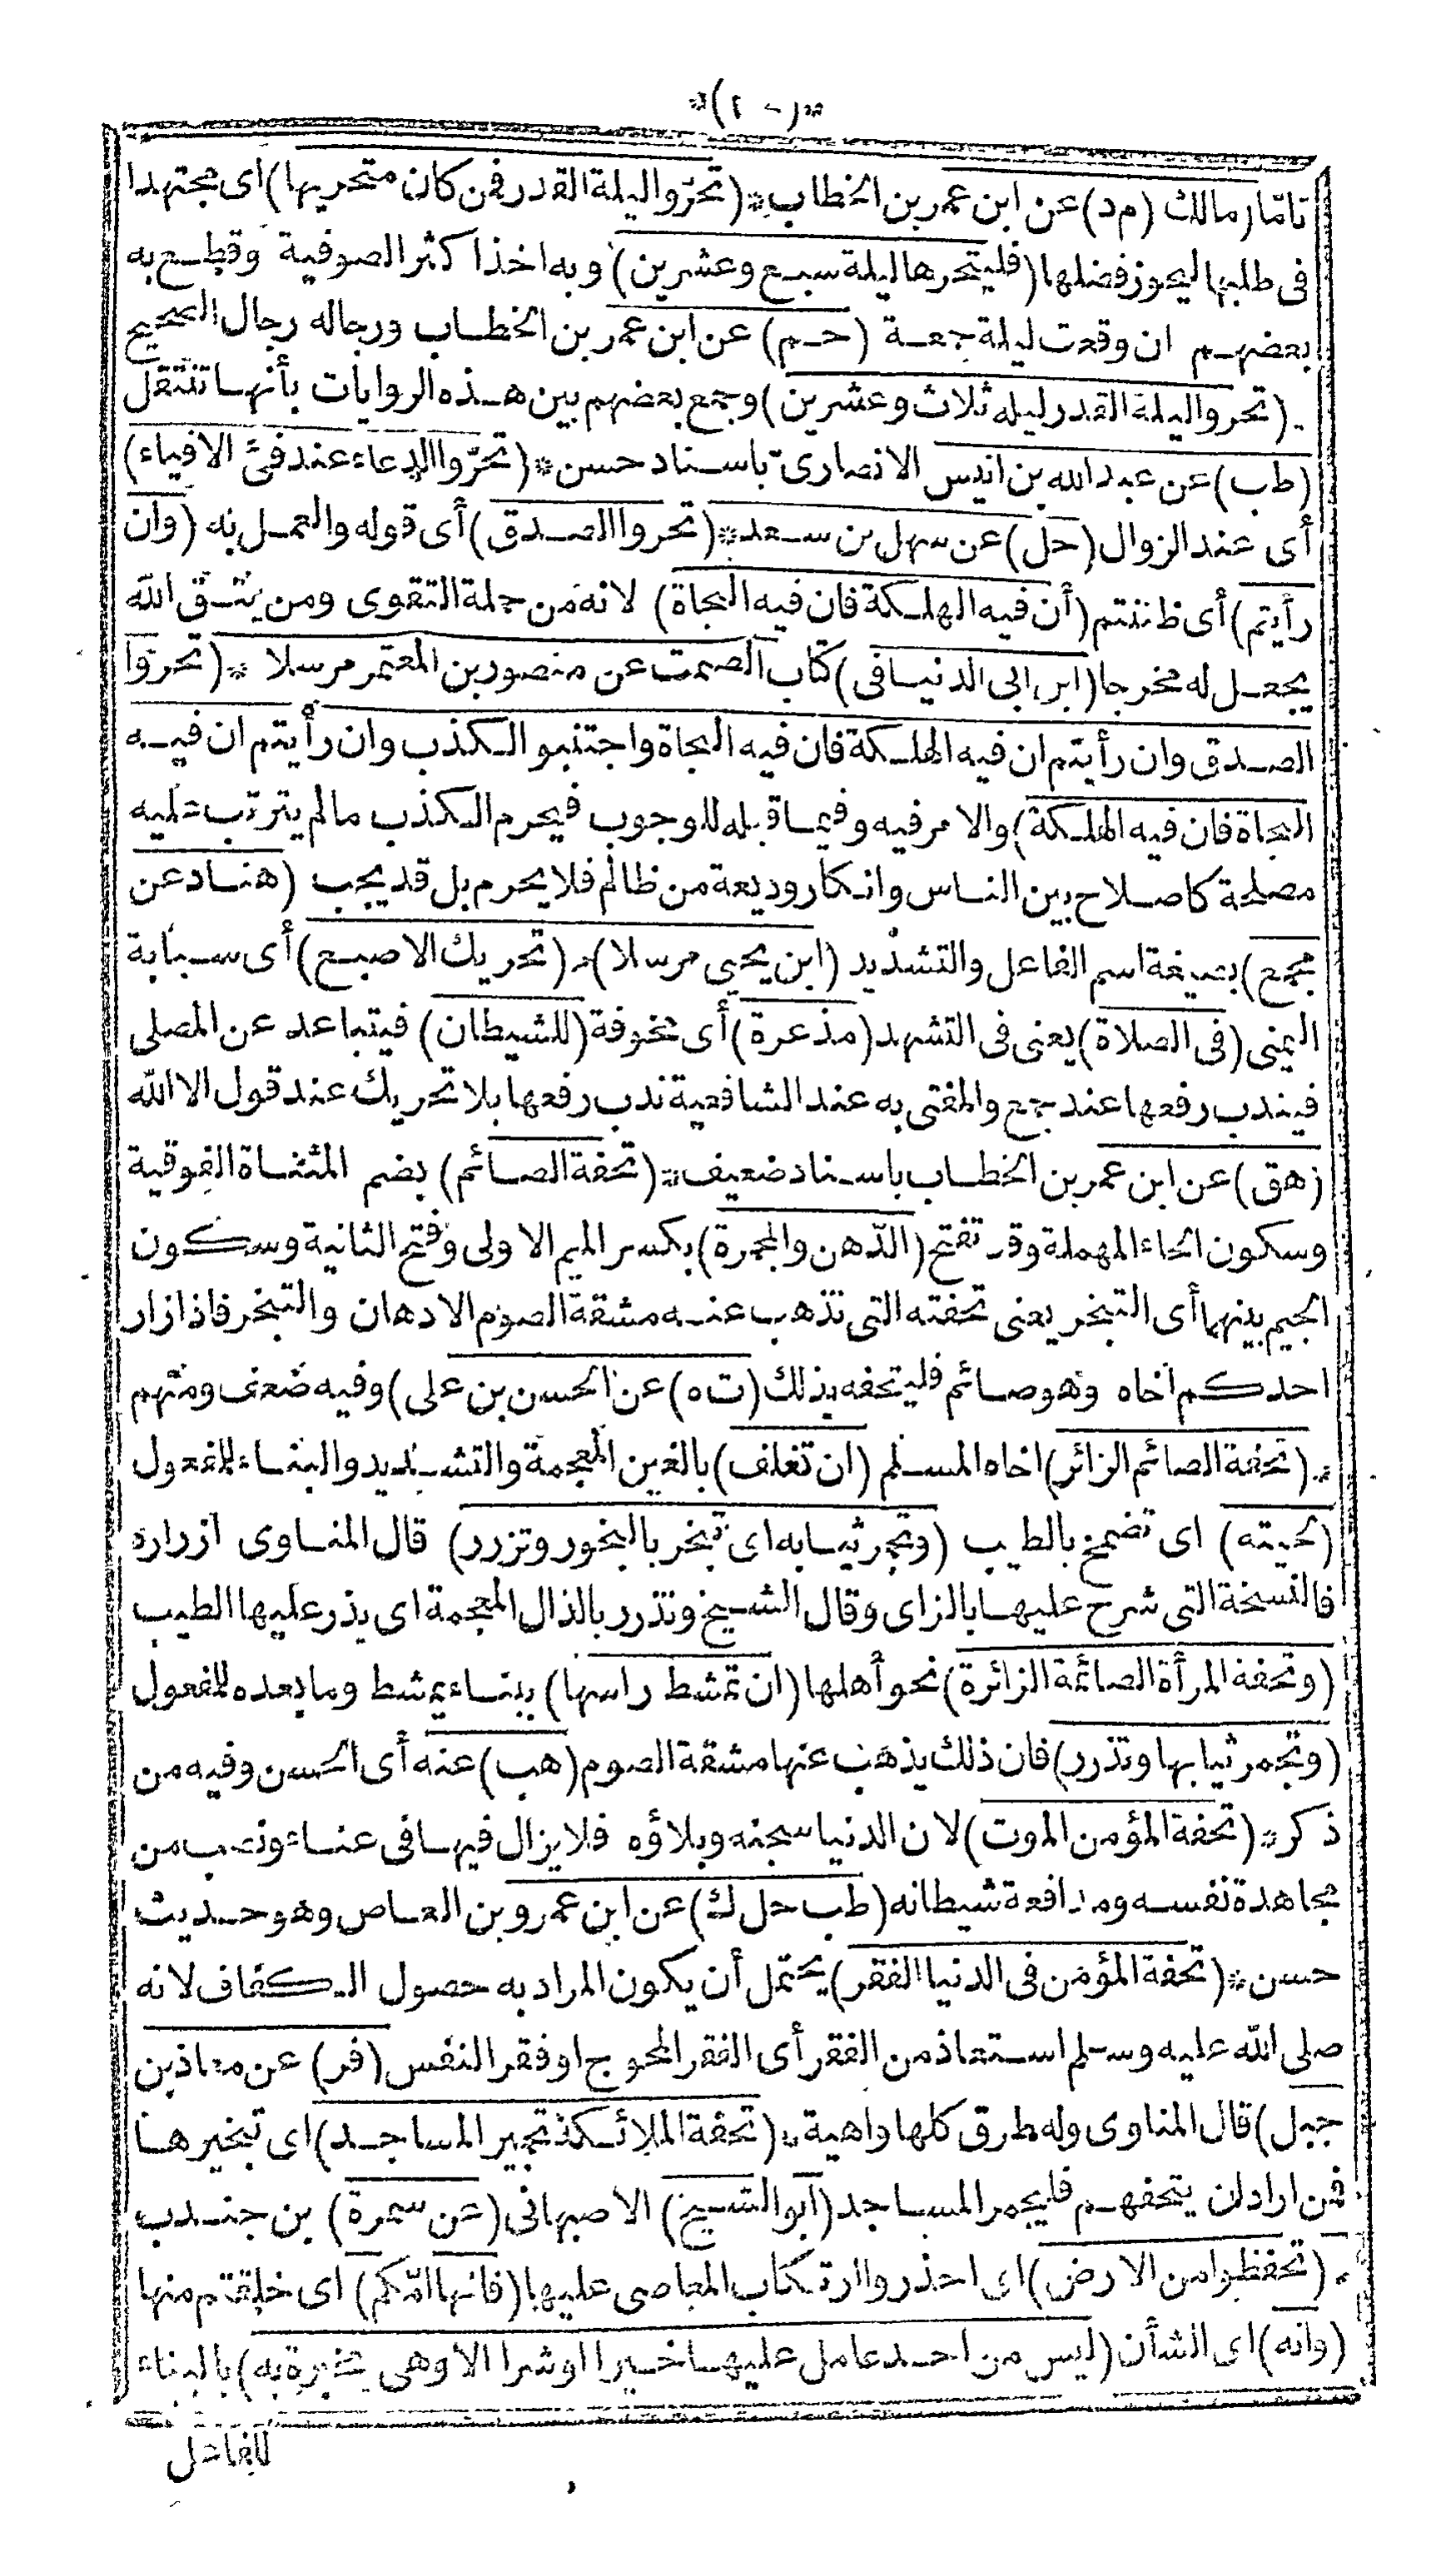 تا مّا رمالك (م د) عن ابن عمر بن الخطاب * (تحرّوا ليلة القدر فمن كان متحريها) اى مجتهدا
فى طلبها ليحوز فضلها (فليتحرها ليلة سبع وعشرين) وبه اخذ اكثر الصوفية وقطع به
بعضهم ان وقعت ليلة جمعة (حم) عن ابن عمر بن الخطاب ورجاله رجال الصحيح
* (تحروا ليلة القدر ليلة ثلاث وعشرين) وجمع بعضهم بين هذه الروايات بأنها تنتقل
(طب) عن عبد الله بن انيس الانصارىّ باسناد حسن * (تحرّوا الدعاء عند فئ الافياء)
أى عند الزوال (حل) عن سهل بن سعد * (تحروا الصدق) أى قوله والعمل به (وان
رأيتم) أى ظننتم (أن فيه الهلكة فان فيه النجاة) لانه من جملة التقوى ومن يتق الله
يجعل له مخرجا (ابن ابى الدنيا فى) كتاب الصمت عن منصور بن المعتمر مرسلا * (تحرّوا
الصدق وان رأيتم ان فيه الهلكة فان فيه النجاة واجتنبو الكذب وان رأيتم ان فيه
النجاة فان فيه الهلكة) والامر فيه وفيما قبله للوجوب فيحرم الكذب مالم يترتب عليه
مصلحة كاصلاح بين الناس وانكار وديعة من ظالم فلا يحرم بل قد يجب (هناد عن
مجمع) بصيغة اسم الفاعل والتشديد (ابن يحيى مرسلا) * (تحريك الاصبع) أى سبابة
اليمنى (فى الصلاة) يعنى فى التشهد (مذعرة) أى مخوفة (للشيطان) فيتباعد عن المصلى
فيندب رفعها عند جمع والمفتى به عند الشافعية ندب رفعها بلا تحريك عند قول الا الله
(هق) عن ابن عمر بن الخطاب باسناد ضعيف * (تحفة الصائم) بضم المثناة الفوقية
وسكون الحاء المهملة وقد تفتح (الدّهن والمجمرة) بكسر الميم الاولى وفتح الثانية وسكون
الجيم بينهما أى التبخر يعنى تحفته التى تذهب عنه مشقة الصوم الادهان والتبخر فاذا زار
احدكم اخاه وهو صائم فليتحفه بذلك (ت ه) عن الحسن بن على) وفيه ضعف ومتهم
* (تحفة الصائم الزائر) اخاه المسلم (ان تغلف) بالغين المعجمة والتشديد والبناء للمفعول
(لحيته) اى تضمخ بالطيب (وتجمر ثيابه اى تبخر بالبخور وتزرر) قال المناوى ازراره
فالنسخة التى شرح عليها بالزاى وقال الشيخ وتذرر بالذال المعجمة اى يذر عليها الطيب
(وتحفة المرأة الصائمة الزائرة) نحو أهلها (ان تمشط راسها) ببناء يمشط وما بعده للمفعول
(وتجمر ثيابها وتذرر) فان ذلك يذهب عنها مشقة الصوم (هب) عنه أى الحسن وفيه من
ذكر * (تحفة المؤمن الموت) لان الدنيا سجنه وبلاؤه فلا يزال فيها فى عناء ونصب من
مجاهدة نفسه ومدافعة شيطانه (طب حل ك) عن ابن عمرو بن العاص وهو حديث
حسن * (تحفة المؤمن فى الدنيا الفقر) يحتمل أن يكون المراد به حصول الكفاف لانه
صلى الله عليه وسلم استعاذ من الفقر أى الفقر المحوج او فقر النفس (فر) عن معاذ بن
جبل) قال المناوى وله طرق كلها واهية * (تحفة الملائكة تجمير المساجد) اى تبخيرها
فمن اراد ان يتحفهم فليجمر المساجد (أبو الشيخ) الاصبهانى (عن سمرة) بن جندب
* (تحفظوا من الارض) اى احذروا ارتكاب المعاصى عليها (فانها امّكم) اى خلقتم منها
(وانه) اى الشأن (ليس من احد عامل عليها خيرا او شرا الا وهى مخبرة به) بالبناء
للفاعل